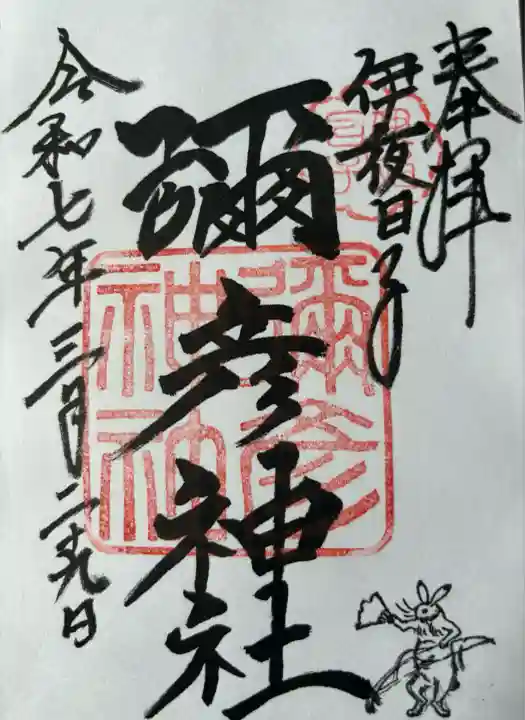 奉拝
伊夜日子
彌彦神社
彌彦神社
令和七年三月二十九日